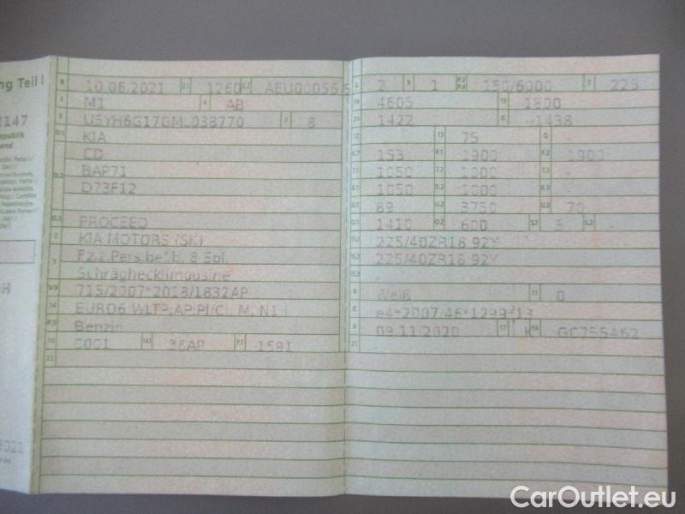 ng Teil I
10.06.2021 1260
M1 AB
8
KIA
CD
BAP71
D73F12
PROCEED
KIA MOTORS (SK)
Fz.z.Pers.bef.b. 8 Spl.
Schräghecklimousine
715/2007*2018/1832AP
EURO6 WLTP,AP,PI/CI, M, N1 I
Benzin
0001 36AP 1591
2 1 150/6000 225
4605 1800
1422 -1438
75
153 1900 1900
1050 1000
1050 1000
69 3750 70
1410 600 5
225/40ZR18 92Y
225/40ZR18 92Y
0
e4*2007/46*1299*13
09.11.2020 K GC755462
CarOutlet.eu